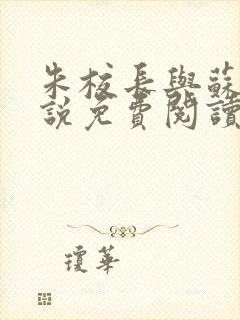 朱校長與蘇
說免費閱讀
瓊華